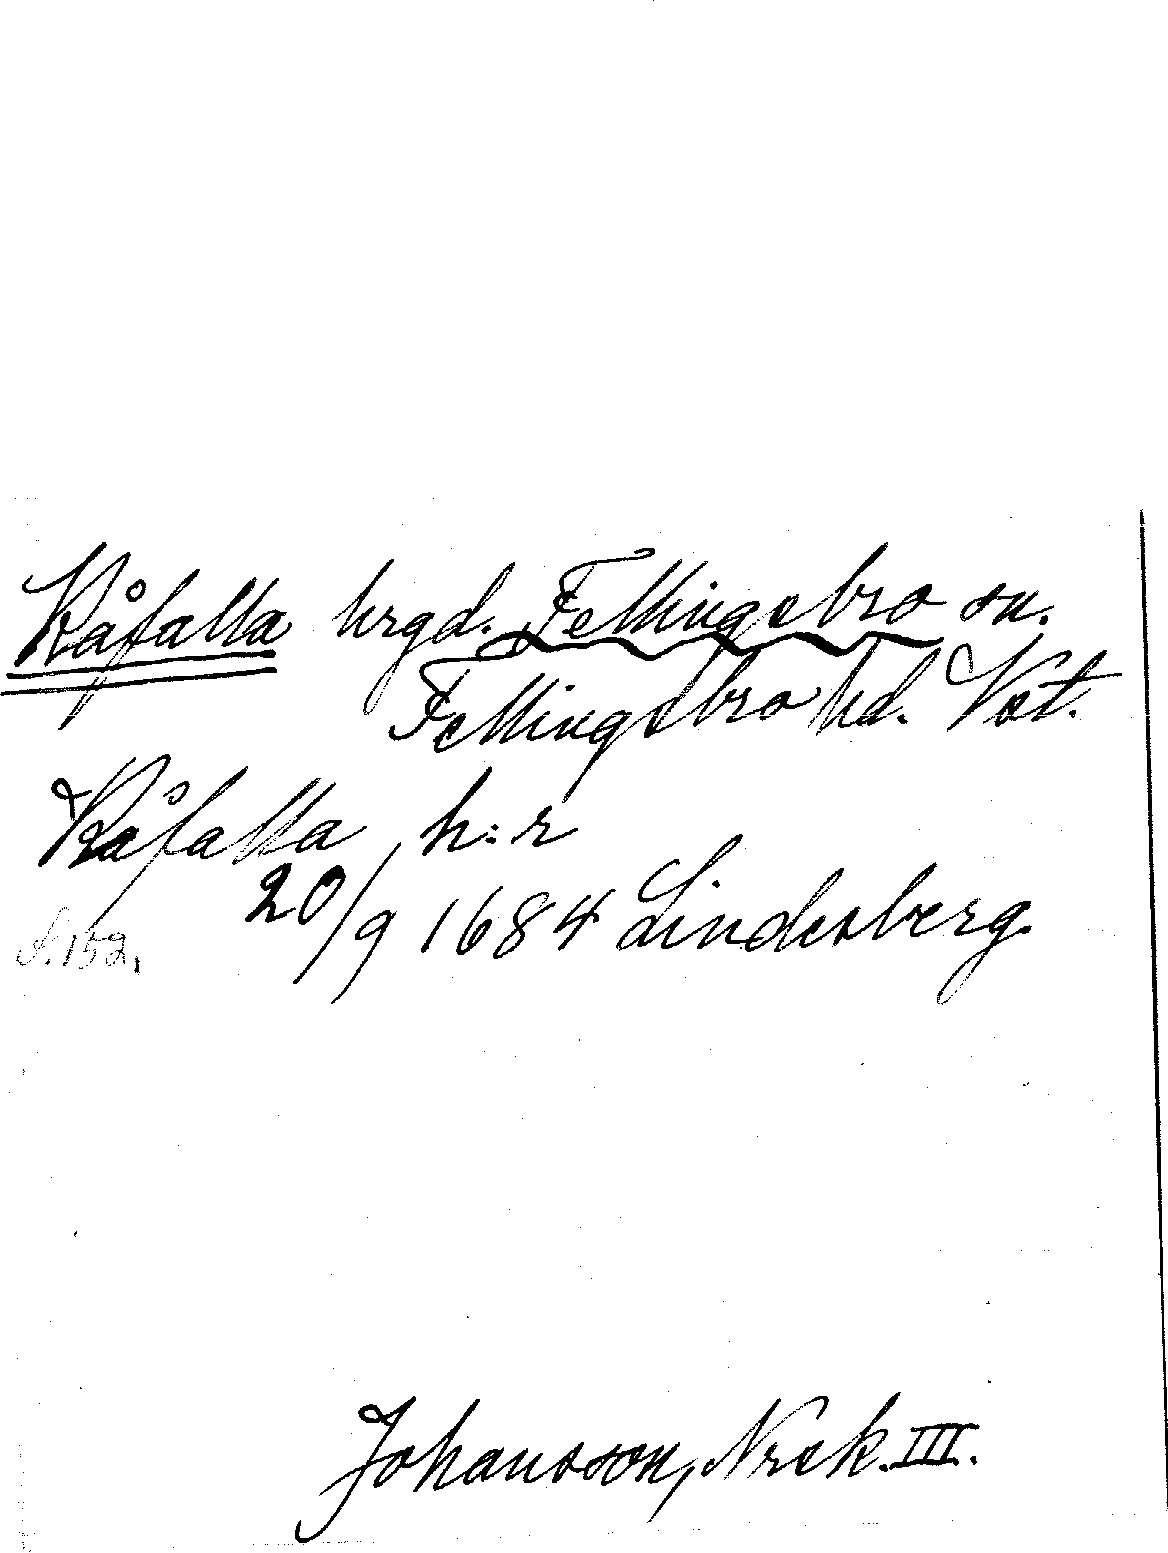 Kåfalla hrgd. Fellingsbro sn.
Fellingsbro hd. Vst.
Kåfalla h:r
20/9 1684 Lindesberg.
S. 152.
Johansson, Nrck. III.